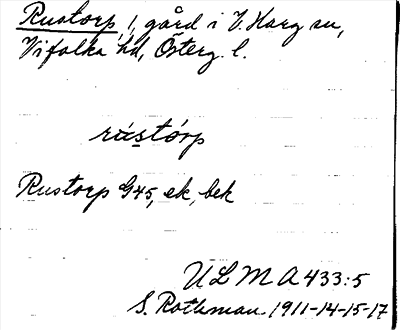 Rustorp, 1, gård i V. Harg sn,
Vifolka hd, Österg. l.
rústórp
Rustorp G45, ek, bek
ULMA 433:5
S. Rothman 1911-14-15-17